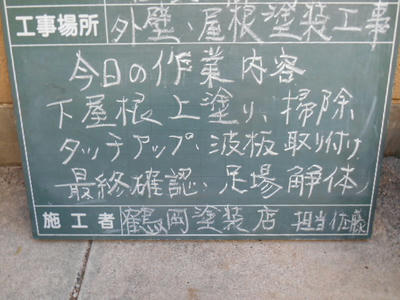 工事場所 外壁、屋根塗装工事
今日の作業内容
下屋根上塗り、掃除
タッチアップ、波板取り付け
最終確認、足場解体
施工者 鶴岡塗装店 担当佐藤